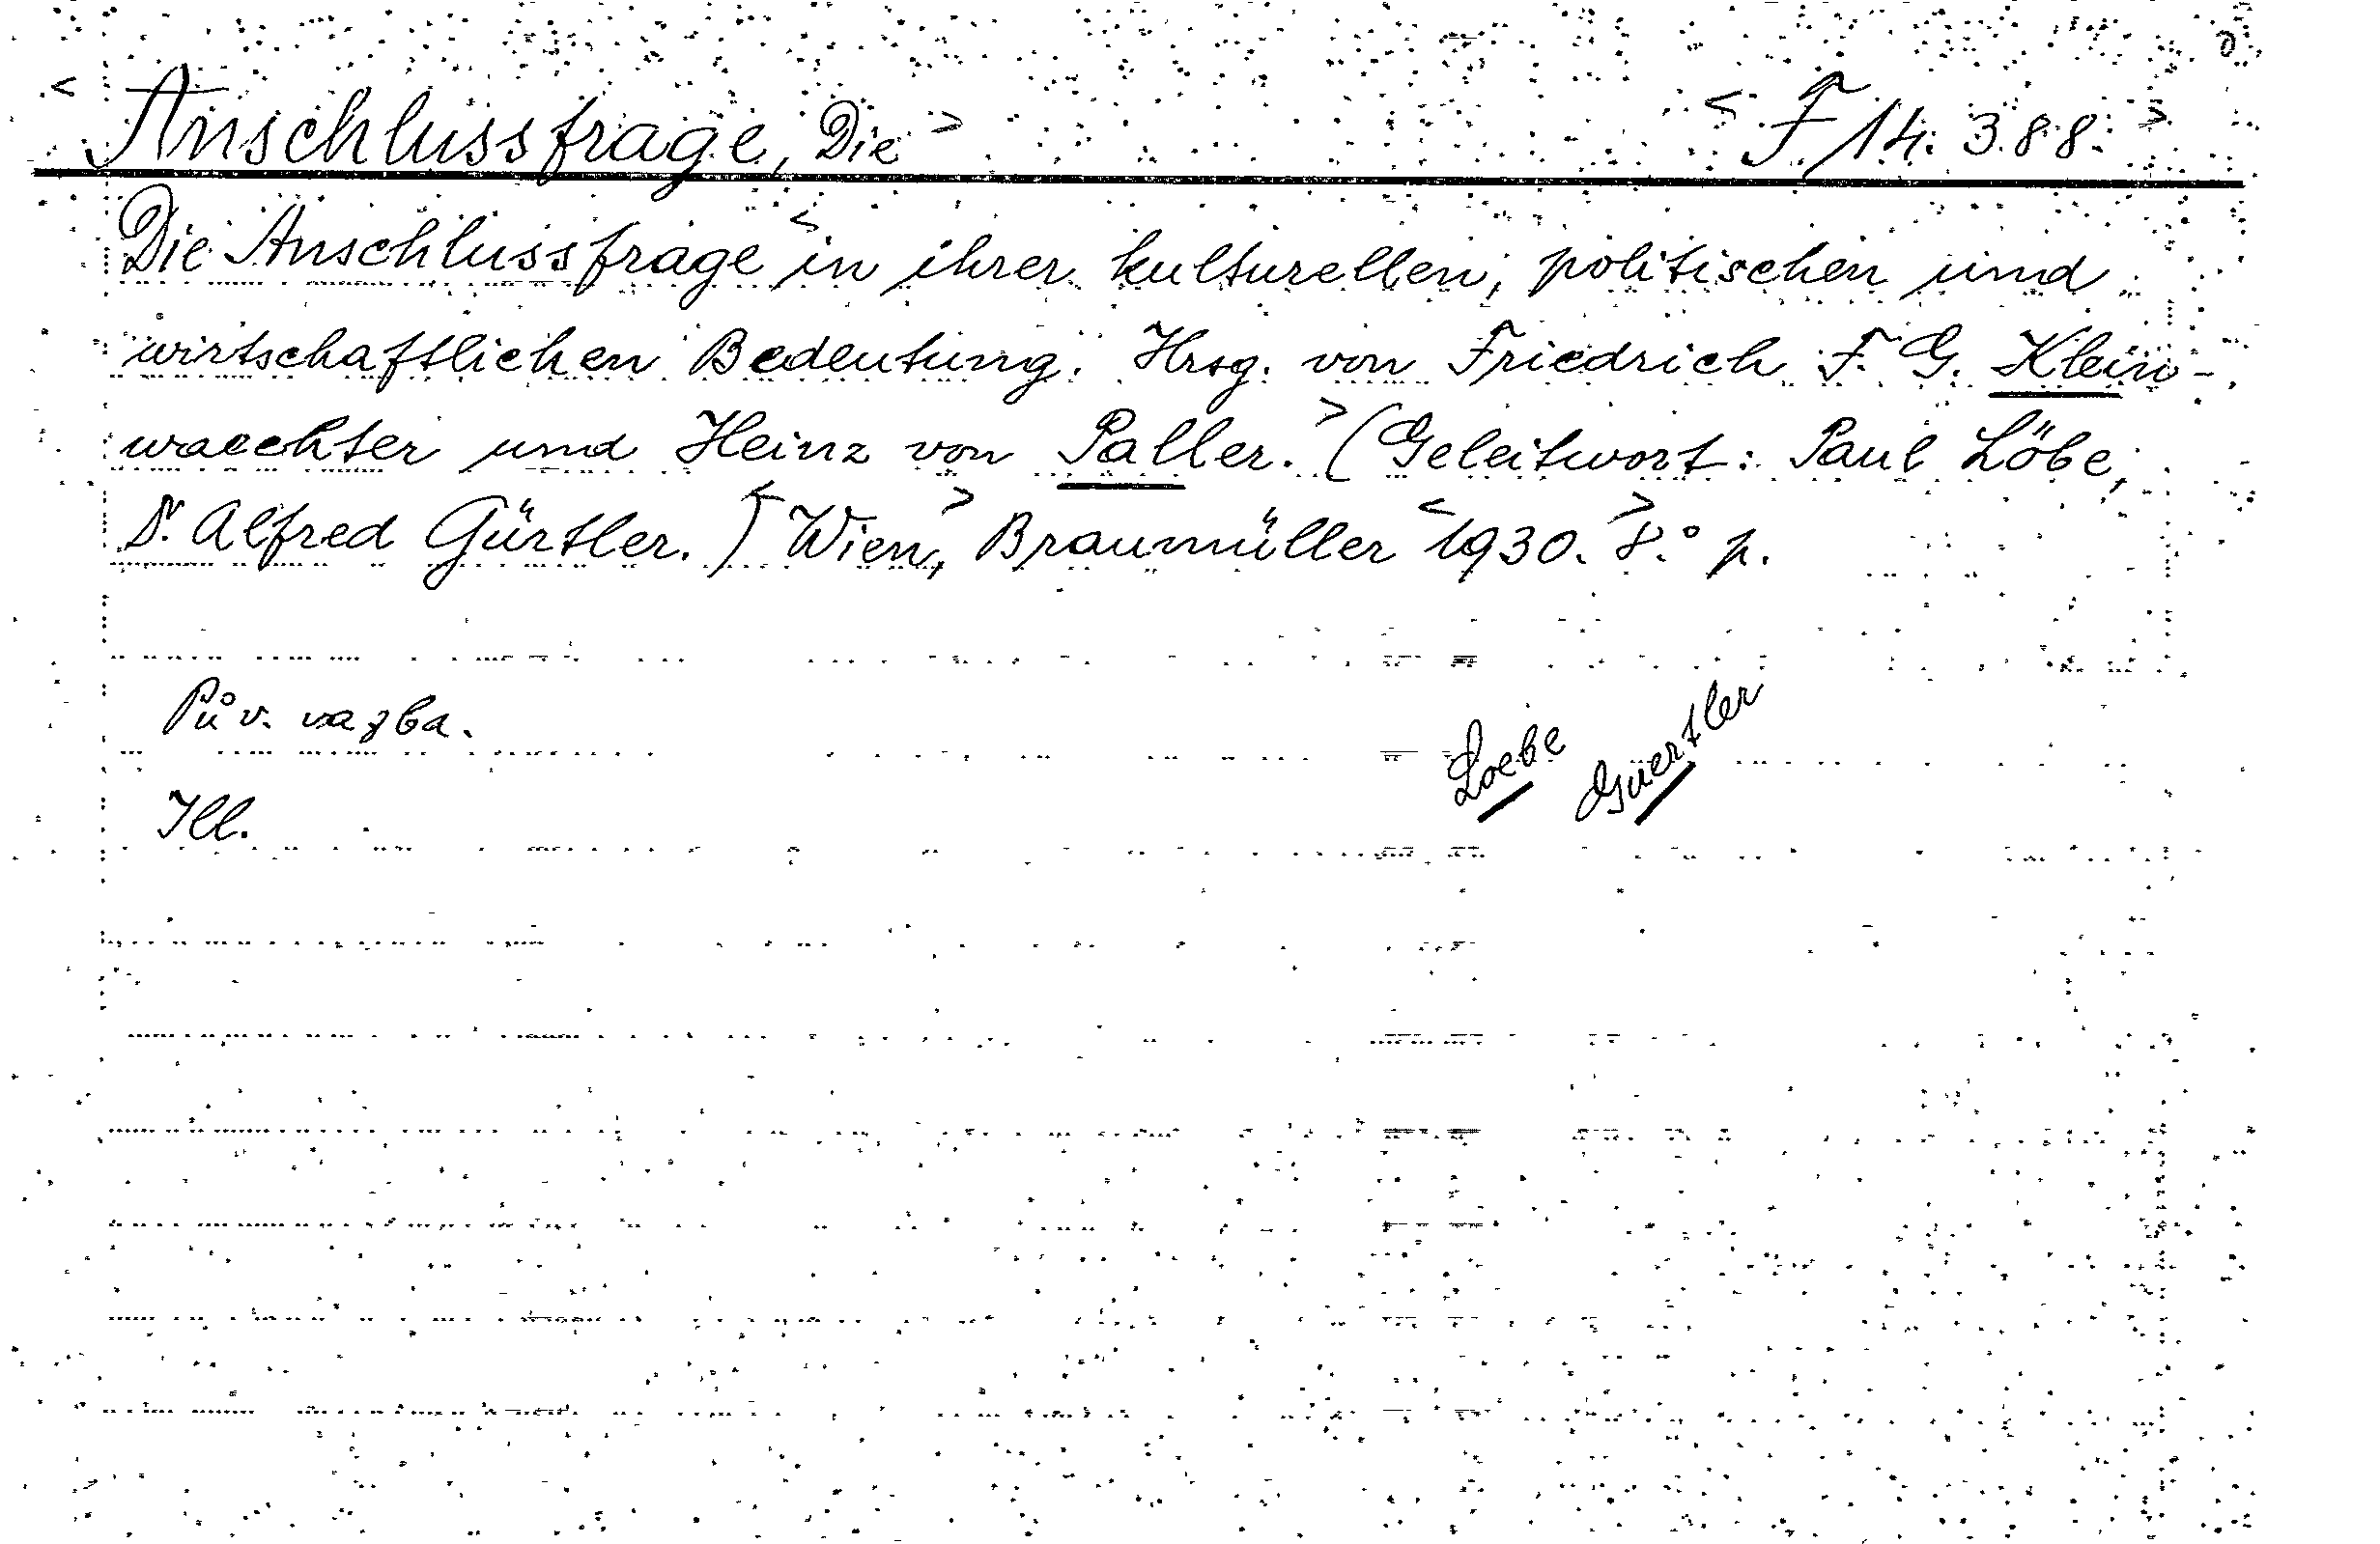 < Anschlussfrage, Die > < F 14.388. >
Die Anschlussfrage < in ihrer kulturellen, politischen und
wirtschaftlichen Bedeutung. Hrsg. von Friedrich F. G. Klein-
waechter und Heinz von Paller. > (Geleitwort: Paul Löbe,
Dr. Alfred Gürtler.) < Wien, > Braumüller < 1930. > 8.° p.
Pův. vazba.
Loebe Guertler
Ill.